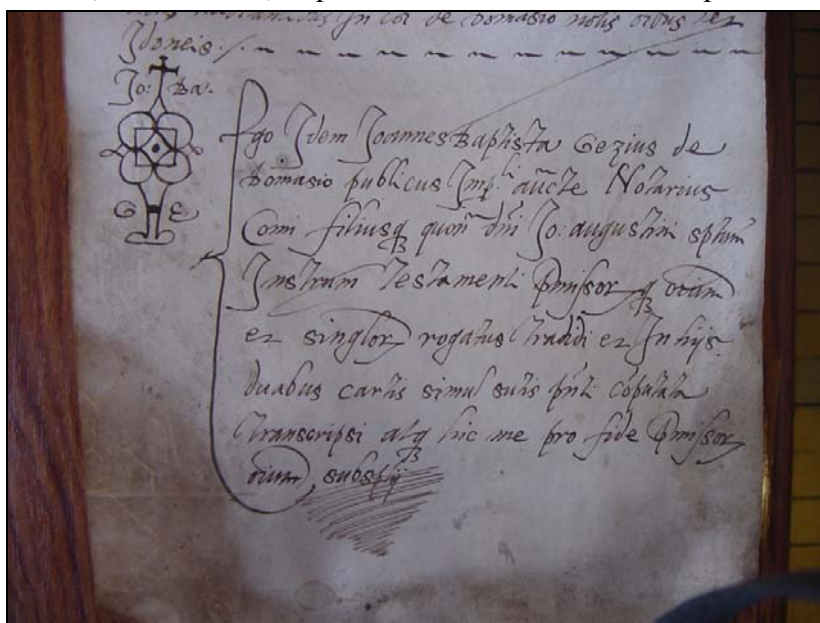 de Domasio notis omnibus et
Idoneis ./.
Jo: Ba.
Ego Idem Joannes Baptista Gezius de
Domasio publicus Imp.li aucte Notarius
Comi filiusq quon dni Jo: augustini sptum
Instrum Testamenti pmissor q oium
et singlor rogatus tradidi et In hijs
duabus cartis simul sutis pnti
Transcripsi atq hic me pro fide pmissor
oium subspsi
G E